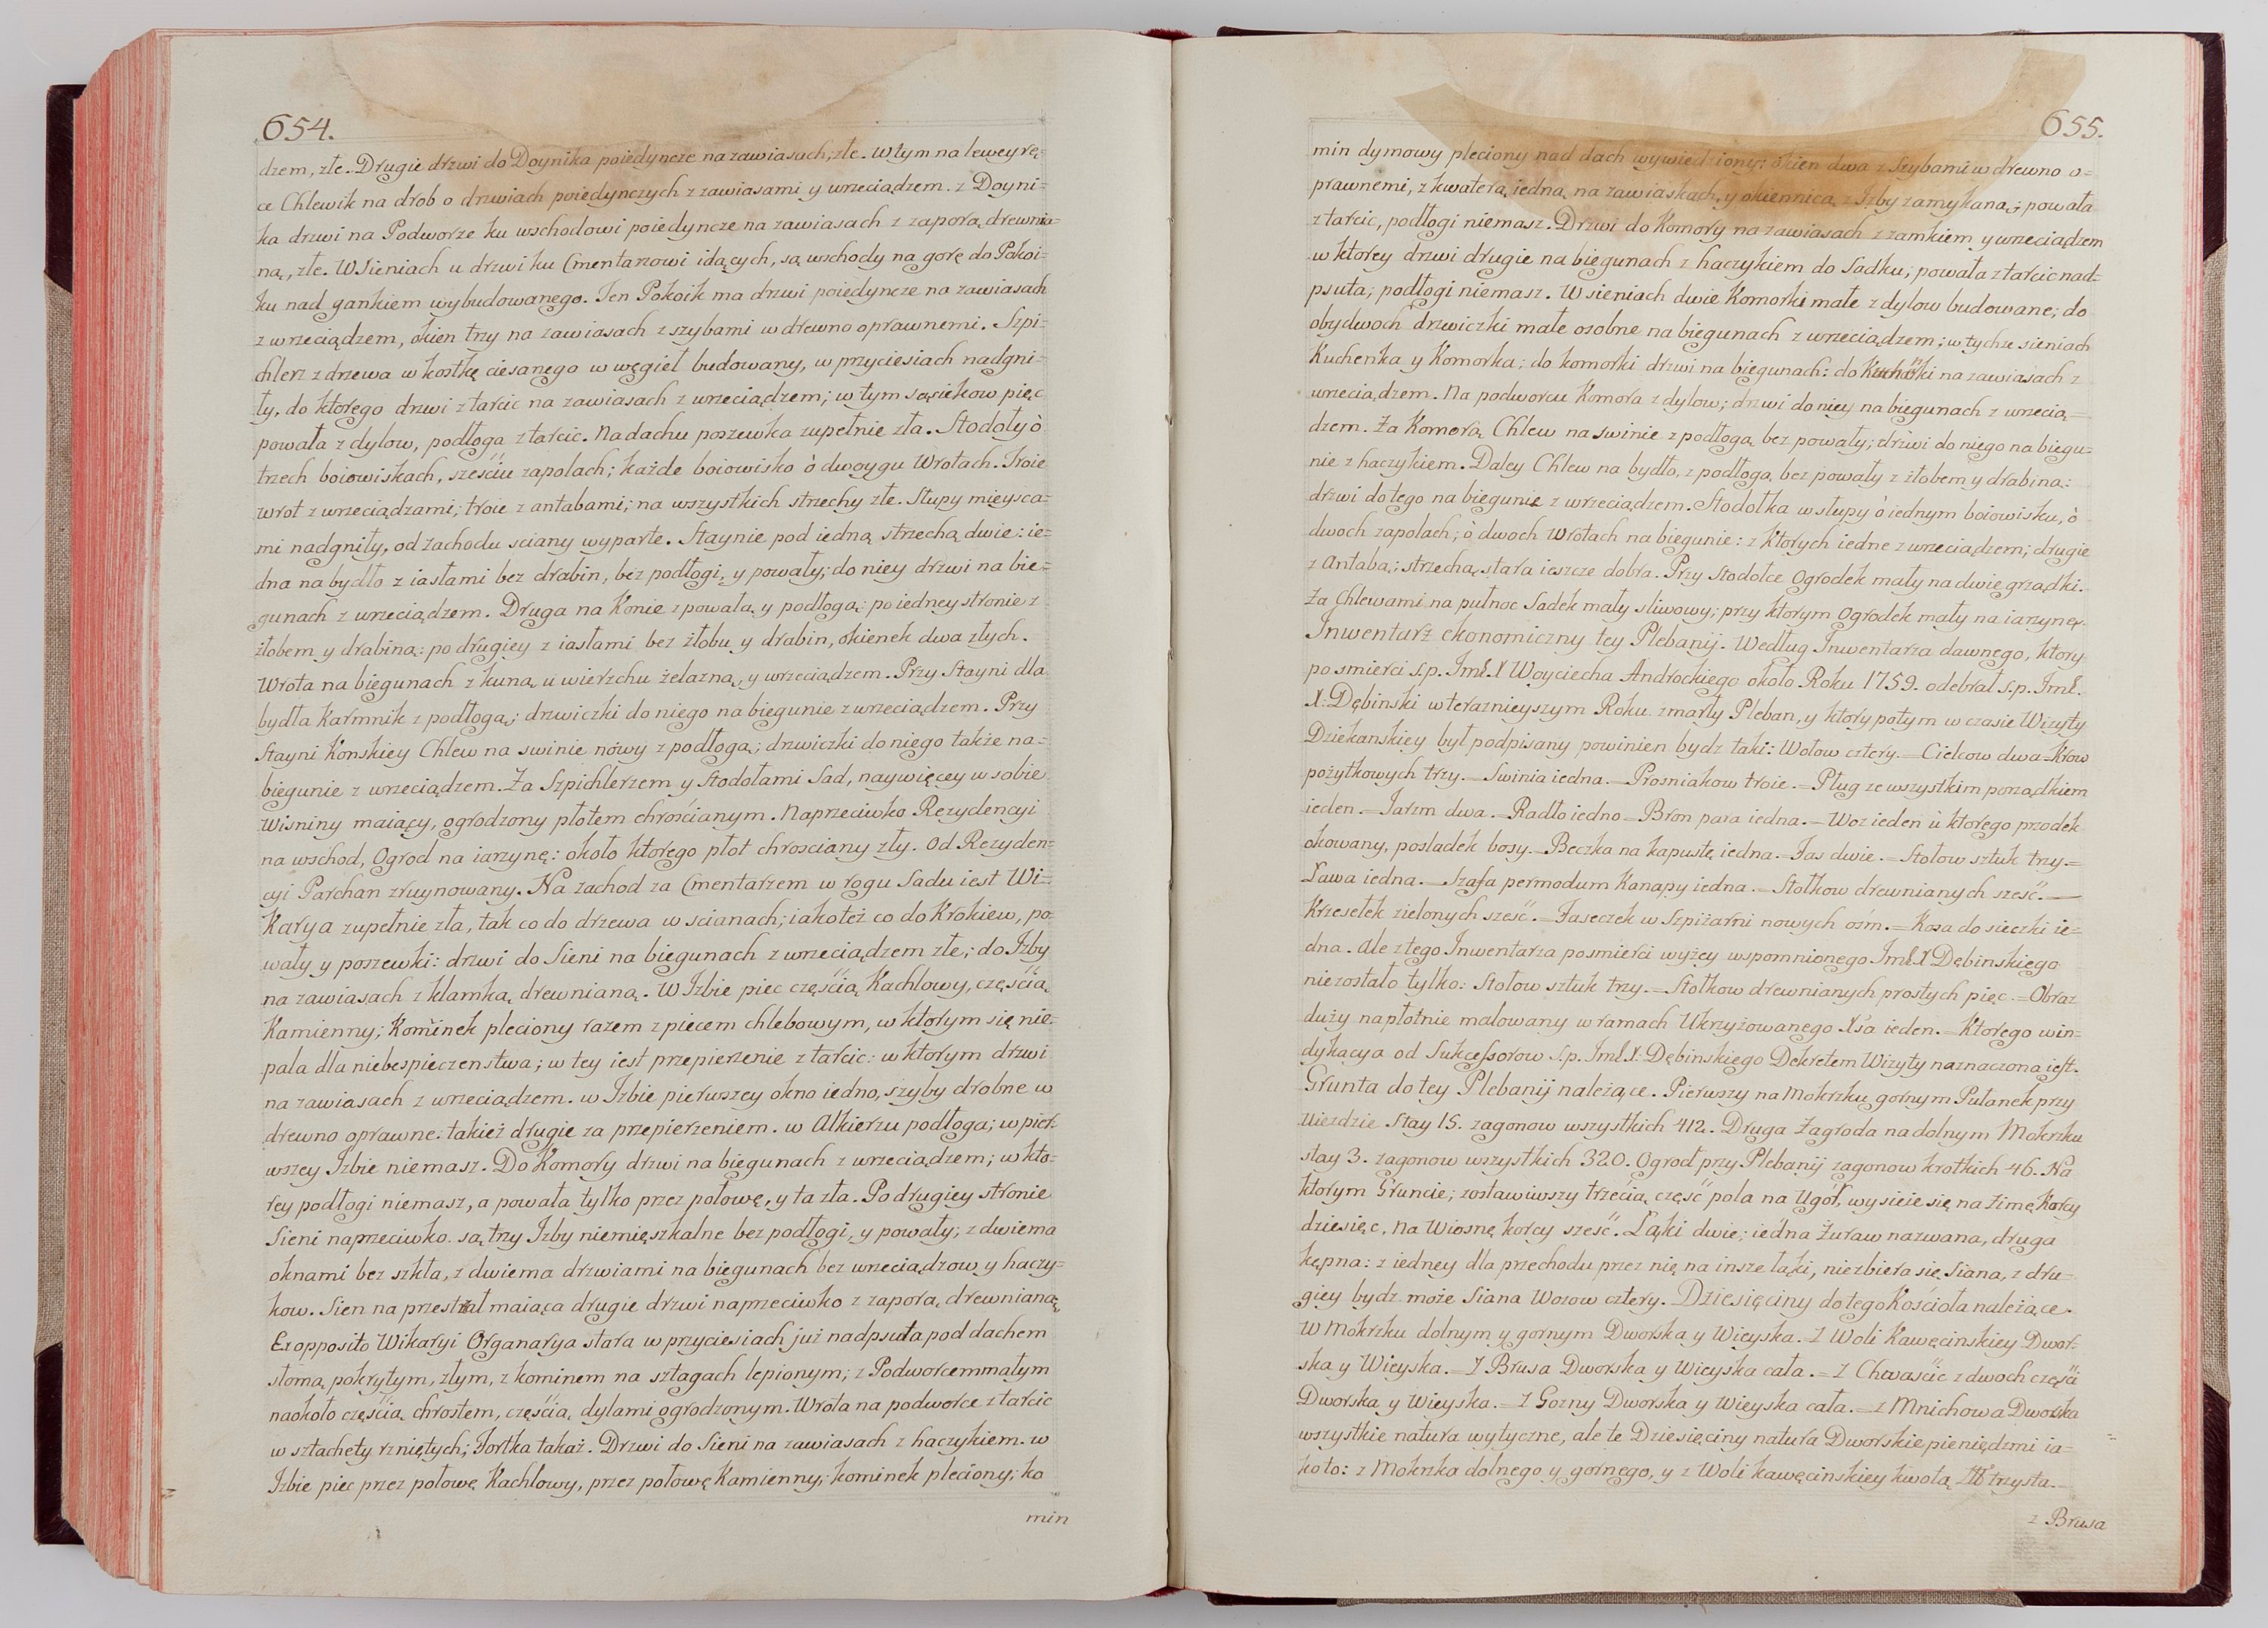 654.
dzem, złe. Drugie drzwi do Doynika poiedyncze na zawiasach, złe. W tym na lewey rę=
ce Chlewik na drob o drzwiach poiedynczych z zawiasami y wrzeciądzem. z Doyni=
ka drzwi na Podworze ku wschodowi poiedyncze na zawiasach z zaporą drewnia=
ną, złe. W Sieniach u drzwi ku Cmentarzowi idących, są wschody na gorę do Pokoi=
ku nad gankiem wybudowanego. Ten Pokoik ma drzwi poiedyncze na zawiasach
z wrzeciądzem, okien trzy na zawiasach z szybami w drewno oprawnemi. Szpi=
chlerz z drzewa w kostkę ciesanego w węgieł budowany, w przyciesiach nadgni=
ły, do ktorego drzwi z tarcic na zawiasach z wrzeciądzem; w tym sąsiekow pięc
powała z dylow, podłoga z tarcic. Na dachu poszewka zupełnie zła. Stodoły ò
trzech boiowiskach, sześciu zapolach; każde boiowisko ò dwoygu Wrotach. Troie
wrot z wrzeciądzami; troie z antabami; na wszystkich strzechy złe. Słupy mieysca=
mi nadgniły, od zachodu sciany wyparte. Staynie pod iedną strzechą dwie: ie=
dna na bydło z iasłami bez drabin, bez podłogi, y powały; do niey drzwi na bie=
gunach z wrzeciądzem. Druga na Konie z powałą y podłogą: po iedney stronie z
żłobem y drabiną: po drugiey z iasłami bez żłobu y drabin, okienek dwa złych.
Wrota na biegunach z kuną u wierzchu żelazną, y wrzeciądzem. Przy Stayni dla
bydła Karmnik z podłogą; drzwiczki do niego na biegunie z wrzeciądzem. Przy
Stayni Konskiey Chlew na swinie nòwy z podłogą; drzwiczki do niego także na=
biegunie z wrzeciądzem. Za Szpichlerzem y Stodołami Sad, naywięcey w sobie
Wisniny maiący, ogrodzony płotem chrościanym. Naprzeciwko Rezydencyi
na wschod, Ogrod na iarzynę: około ktorego płot chrosciany zły. Od Rezyden=
cyi Parchan zruynowany. Na zachod za Cmentarzem w rogu Sadu iest Wi=
Karya zupełnie zła, tak co do drzewa w scianach; iakoteż co do Krokiew, po=
wały y poszewki: drzwi do Sieni na biegunach z wrzeciądzem złe; do Izby
na zawiasach z klamką drewnianą. W Izbie piec częścią Kachlowy, częścią
Kamienny; Kominek pleciony razem z piecem chlebowym, w ktorym się nie=
pala dla niebespieczenstwa; w tey iest przepierzenie z tarcic: w ktorym drzwi
na zawiasach z wrzeciądzem. w Izbie pierwszey okno iedno, szyby drobne w
drewno oprawne. takież drugie za przepierzeniem. w Alkierzu podłoga; w pier=
wszey Izbie niemasz. Do Komory drzwi na biegunach z wrzeciądzem; w kto=
rey podłogi niemasz, a powała tylko przez połowę, y ta zła. Po drugiey stronie
Sieni naprzeciwko. są trzy Izby niemięszkalne bez podłogi, y powały; z dwiema
oknami bez szkła, z dwiema drzwiami na biegunach bez wrzeciądzow y haczy=
kow. Sien na przestrzał maiąca drugie drzwi naprzeciwko z zaporą drewnianą.
Ex opposito Wikaryi Organarya stara w przyciesiach już nadpsuta pod dachem
słomą pokrytym, złym, z kominem na sztagach lepionym; z Podworcem małym
naokoło częścią chrostem, częścią dylami ogrodzonym. Wrota na podworce z tarcic
w sztachety rzniętych; Fortka takaż. Drzwi do Sieni na zawiasach z haczykiem. w
Izbie piec przez połowę Kachlowy, przez połowę Kamienny; kominek pleciony; ko
min
655.
min dymowy pleciony nad dach wywiedziony; okien dwa z Szybami w drewno o=
prawnemi, z kwaterą iedną na zawiaskach, y okiennicą z Izby zamykaną; powała
z tarcic, podłogi niemasz. Drzwi do Komory na zawiasach z zamkiem y wrzeciądzem
w ktorey drzwi drugie na biegunach z haczykiem do Sadku; powała z tarcic nad=
psuta; podłogi niemasz. W sieniach dwie Komorki małe z dylow budowane; do
obydwoch drzwiczki małe osobne na biegunach z wrzeciądzem; w tychże sieniach
Kuchenka y Komorka; do komorki drzwi na biegunach: do Kuchąrki na zawiasach z
wrzeciądzem. Na podworcu Komora z dylow; drzwi do niey na biegunach z wrzecią=
dzem. Za Komorą Chlew na swinie z podłogą bez powały; drzwi do niego na biegu=
nie z haczykiem. Daley Chlew na bydło, z podłogą bez powały z żłobem y drabiną:
drzwi do tego na biegunie z wrzeciądzem. Stodołka w słupy ò iednym boiowisku, ò
dwoch zapolach; ò dwoch Wrotach na biegunie: z ktorych iedne z wrzeciądzem; drugie
z Antabą; strzecha stara ieszcze dobra. Przy Stodołce Ogrodek mały na dwie grządki.
Za Chlewami na pułnoc Sadek mały sliwowy; przy ktorym Ogrodek mały na iarzynę.
Inwentarz ekonomiczny tey Plebanij. Według Inwentarza dawnego, ktory
po smierci s.p. ImX Woyciecha Androckiego około Roku 1759. odebrał s.p. Im
X: Dębinski w teraznieyszym Roku zmarły Pleban, y ktory potym w czasie Wizyty
Dziekanskiey był podpisany powinien bydz taki: Wołow cztery. = Cielcow dwa = Krow
pożytkowych trzy. = Swinia iedna. = Prosniakow troie. = Pług ze wszystkim porządkiem
ieden. = Iarzm dwa. = Radło iedno = Bron para iedna. = Woz ieden ù ktorego przodek
okowany, posladek bosy. = Beczka na kapustę iedna. = Fas dwie. = Stołow sztuk trzy. =
Ława iedna. = Szafa per modum Kanapy iedna. = Stołkow drewnianych sześć. =
Krzesełek zielonych sześć. = Faseczek w Szpiżarni nowych ośm. = Kosa do sieczki ie=
dna. Ale z tego Inwentarza po smierci wyżey wspomnionego ImX Dębinskiego
niezostało tylko: Stołow sztuk trzy. = Stołkow drewnianych prostych pięc. = Obraz
duży na płotnie malowany w ramach Ukrzyżowanego Xsa ieden. = Ktorego win=
dykacya od Sukcessorow s.p. ImX. Dębinskiego Dekretem Wizyty naznaczona iest.
Grunta do tey Plebanij należące. Pierwszy na Mokrzku gornym Pułanek przy
Uiezdzie Stay 15. zagonow wszystkich 412. Druga Zagroda na dolnym Mokrzku
stay 3. zagonow wszystkich 320. Ogrod przy Plebanij zagonow krotkich 46. Na
ktorym Gruncie; zostawiwszy trzecią część pola na Ugór, wysieie się na zimę Korcy
dziesięc, na Wiosnę korcy sześć. Łąki dwie; iedna Żuraw nazwana, druga
kępna: z iedney dla przechodu przez nię na insze łąki, niezbiera się Siana, z dru=
giey bydz może Siana Wozow cztery. Dziesięciny do tego Kościoła należące.
W Mokrzku dolnym y gornym Dworska y Wieyska. = Z Woli Kawęcinskiey Dwor=
ska y Wieyska. = Z Brusa Dworska y Wieyska cała. = Z Chwaścic z dwoch częśći
Dworska y Wieyska. = Z Gozny Dworska y Wieyska cała. = z Mnichowa Dworska
wszystkie natura wytyczne, ale te Dziesięciny natura Dworskie pieniędzmi ia=
koto: z Mokrzka dolnego y gornego, y z Woli kawęcinskiey kwotą trzysta.
z Brusa